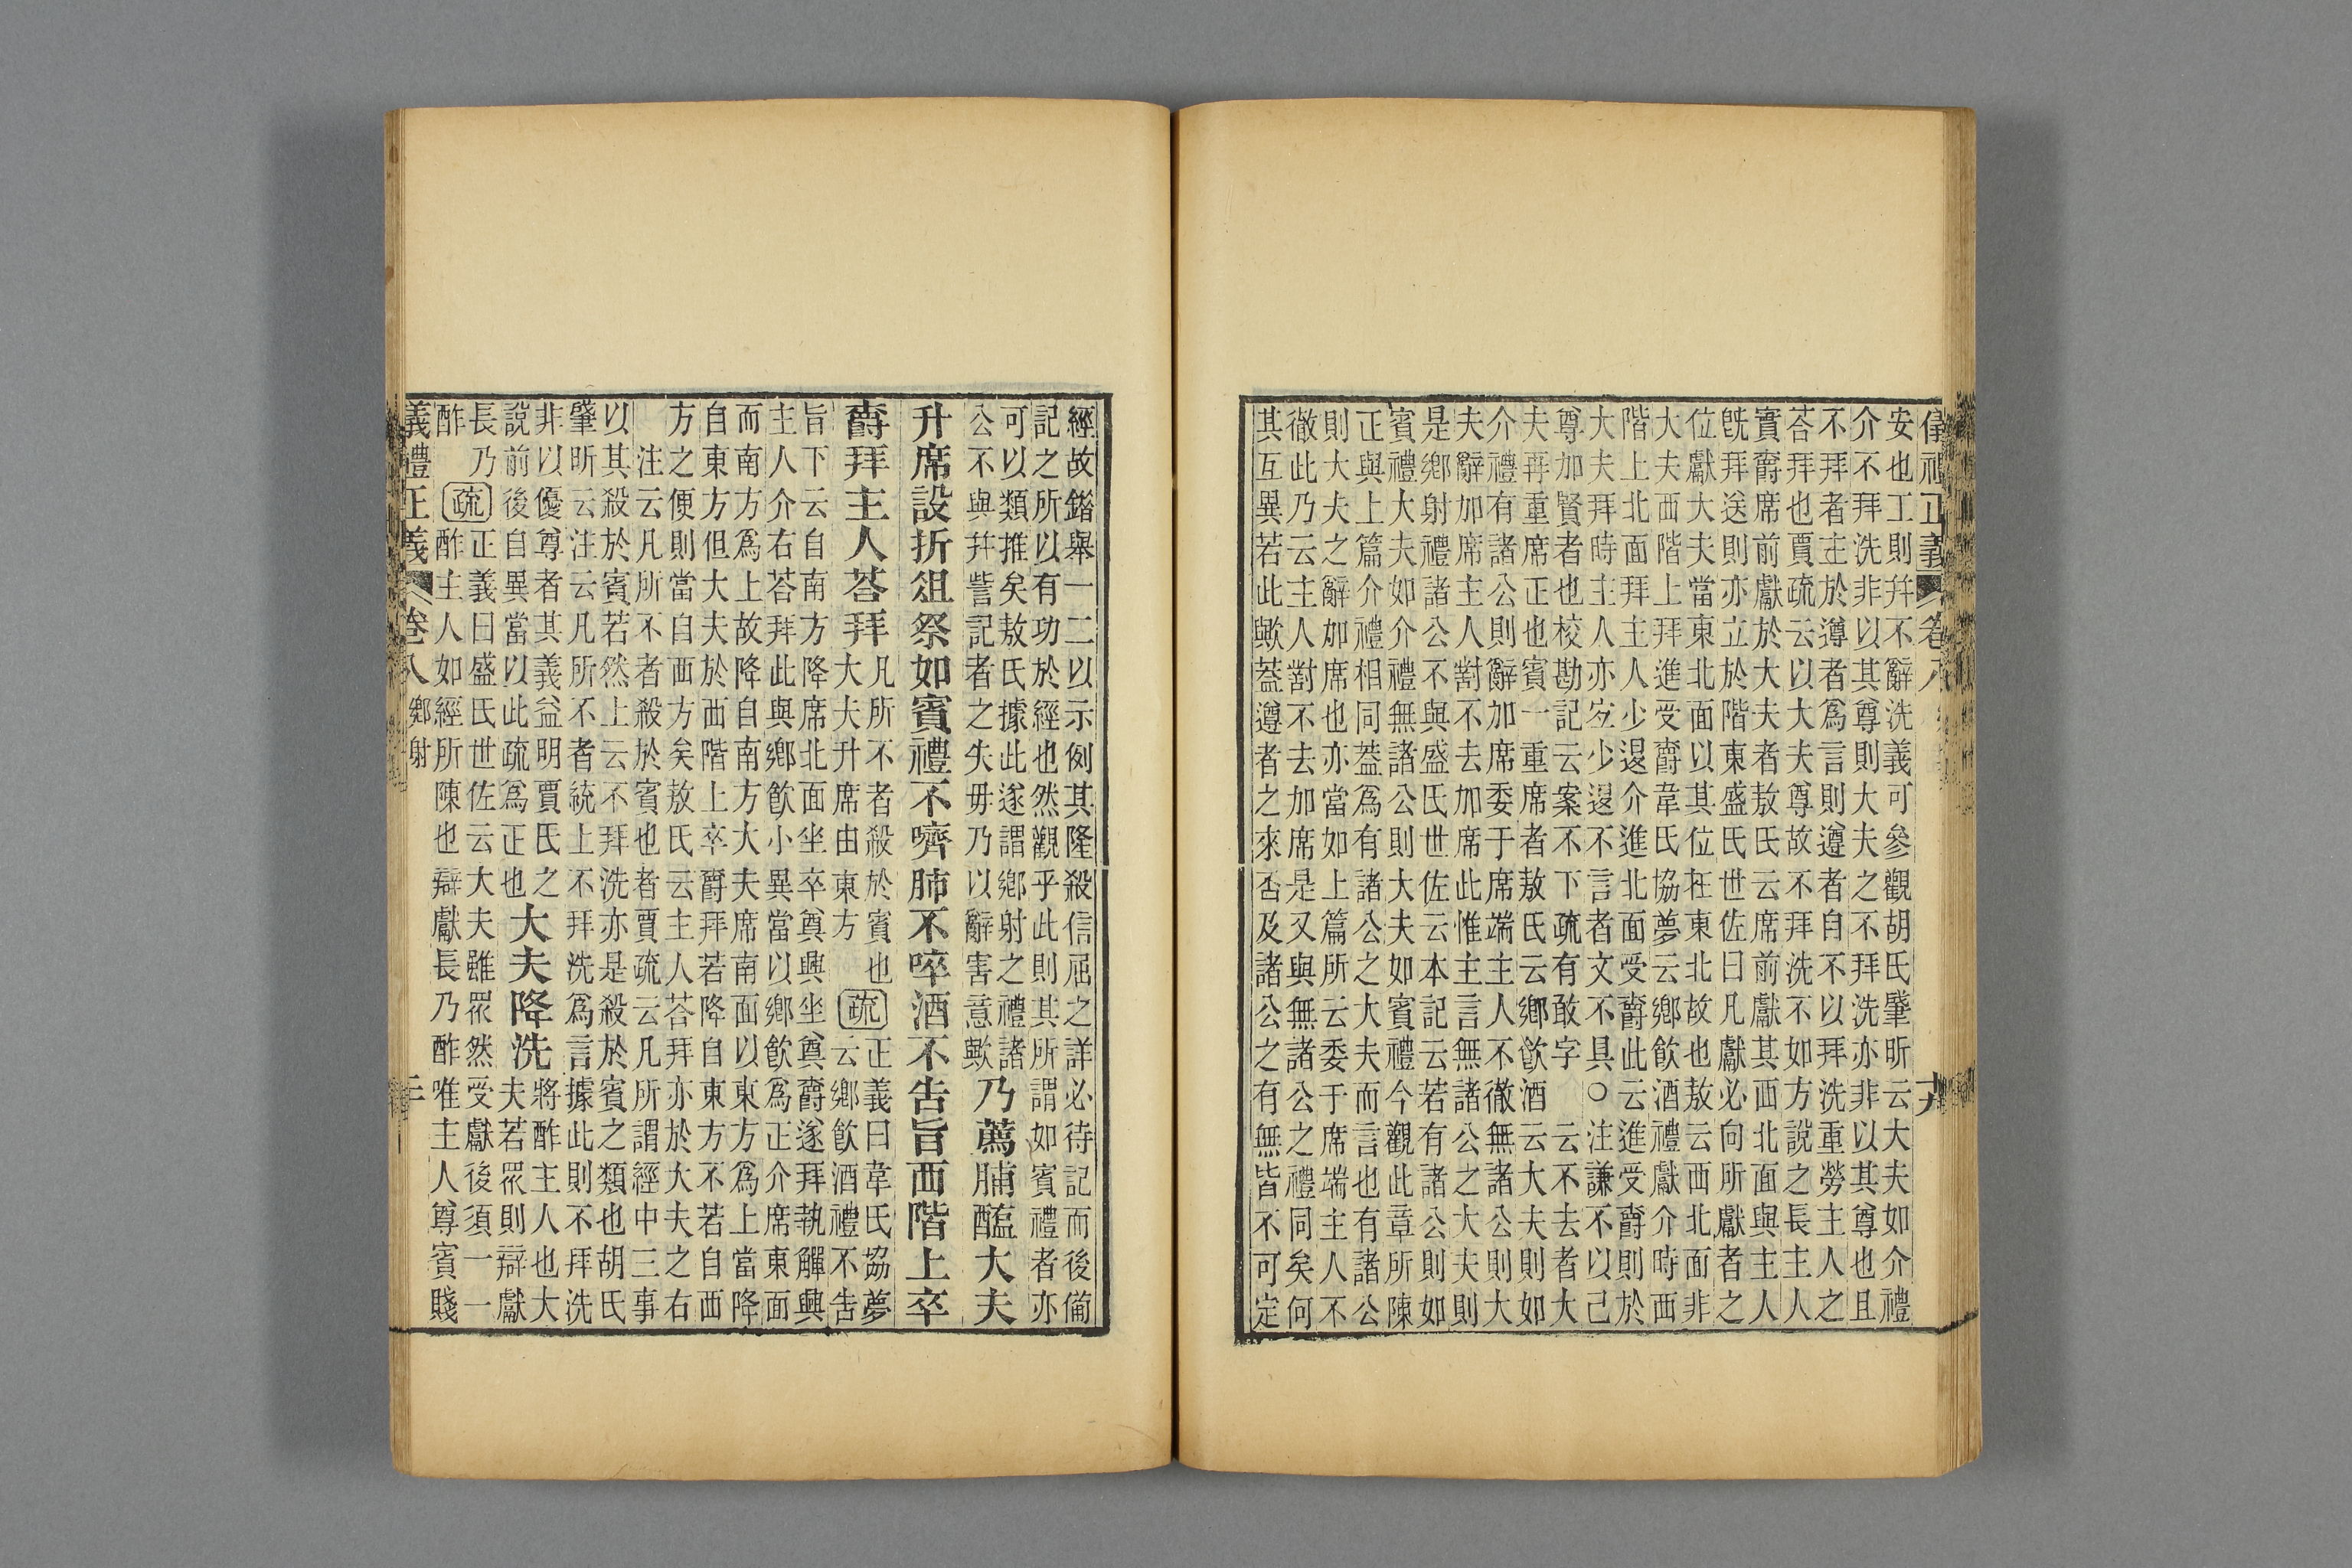 儀禮正義 卷八 十九
安也工則幷不辭洗義可參觀胡氏肇昕云大夫如介禮
介不拜洗非以其尊則大夫之不拜洗亦非以其尊也且
不拜者主於遵者爲言則遵者自不以拜洗重勞主人之
荅拜也賈疏云以大夫尊故不拜洗不如方說之長主人
實爵席前獻於大夫者敖氏云席前獻其西北面與主人
旣拜送則亦立於階東盛氏世佐曰凡獻必向所獻者之
位獻大夫當東北面以其位在東北故也敖云西北面非
大夫西階上拜進受爵韋氏協夢云鄉飮酒禮獻介時西
階上北面拜主人少退介進北面受爵此云進受爵則於
大夫拜時主人亦宐少退不言者文不具○注謙不以己
尊加賢者也校勘記云案不下疏有敢字　云不去者大
夫再重席正也賓一重席者敖氏云鄉飮酒云大夫則如
介禮有諸公則辭加席委于席端主人不徹無諸公則大
夫辭加席主人對不去加席此惟主言無諸公之大夫則
是鄉射禮諸公不與盛氏世佐云本記云若有諸公則如
賓禮大夫如介禮無諸公則大夫如賓禮今觀此章所陳
正與上篇介禮相同葢爲有諸公之大夫而言也有諸公
則大夫之辭加席也亦當如上篇所云委于席端主人不
徹此乃云主人對不去加席是又與無諸公之禮同矣何
其互異若此歟葢遵者之來否及諸公之有無皆不可定
經故錯舉一二以示例其隆殺信屈之詳必待記而後備
記之所以有功於經也然觀乎此則其所謂如賓禮者亦
可以類推矣敖氏據此遂謂鄉射之禮諸
公不與幷訾記者之失毋乃以辭害意歟
乃薦脯醢大夫
升席設折俎祭如賓禮不嚌肺不啐酒不告旨西階上卒
爵拜主人荅拜
凡所不者殺於賓也
大夫升席由東方
疏
正義曰韋氏協夢
云鄉飮酒禮不告
旨下云自南方降席北面坐卒奠興坐奠爵遂拜執觶興
主人介右荅拜此與鄉飮小異當以鄉飮爲正介席東面
而南方爲上故降自南方大夫席南面以東方爲上當降
自東方但大夫於西階上卒爵拜若降自東方不若自西
方之便則當自西方矣敖氏云主人荅拜亦於大夫之右
注云凡所不者殺於賓也者賈疏云凡所謂經中三事
以其殺於賓若然上云不拜洗亦是殺於賓之類也胡氏
肇昕云注云凡所不者統上不拜洗爲言據此則不拜洗
非以優尊者其義益明賈氏之
說前後自異當以此疏爲正也
大夫降洗
將酢主人也大
夫若眾則辯獻
長乃
酢
疏
正義曰盛氏世佐云大夫雖眾然受獻後須一一
酢主人如經所陳也辯獻長乃酢唯主人尊賓賤
義禮正義 卷八 鄉射 二十